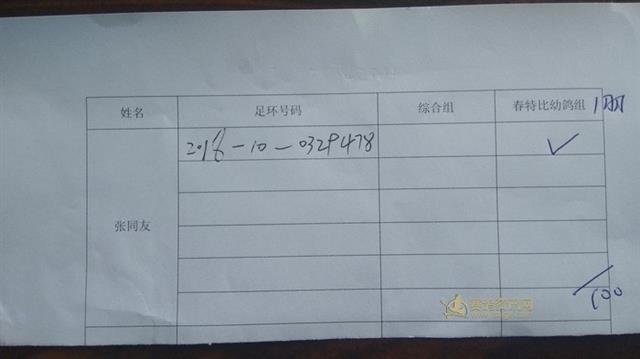 姓名 足环号码 综合组 春特比幼鸽组
2016-10-0329478 ✓
张同友
100